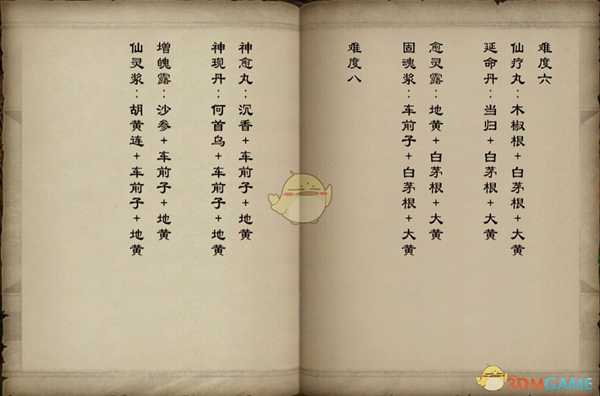 难度六
仙疗丸：木椒根+白茅根+大黄
延命丹：当归+白茅根+大黄
愈灵露：地黄+白茅根+大黄
固魂浆：车前子+白茅根+大黄
难度八
神愈丸：沉香+车前子+地黄
神现丹：何首乌+车前子+地黄
增魄露：沙参+车前子+地黄
仙灵浆：胡黄连+车前子+地黄
3DMGAME